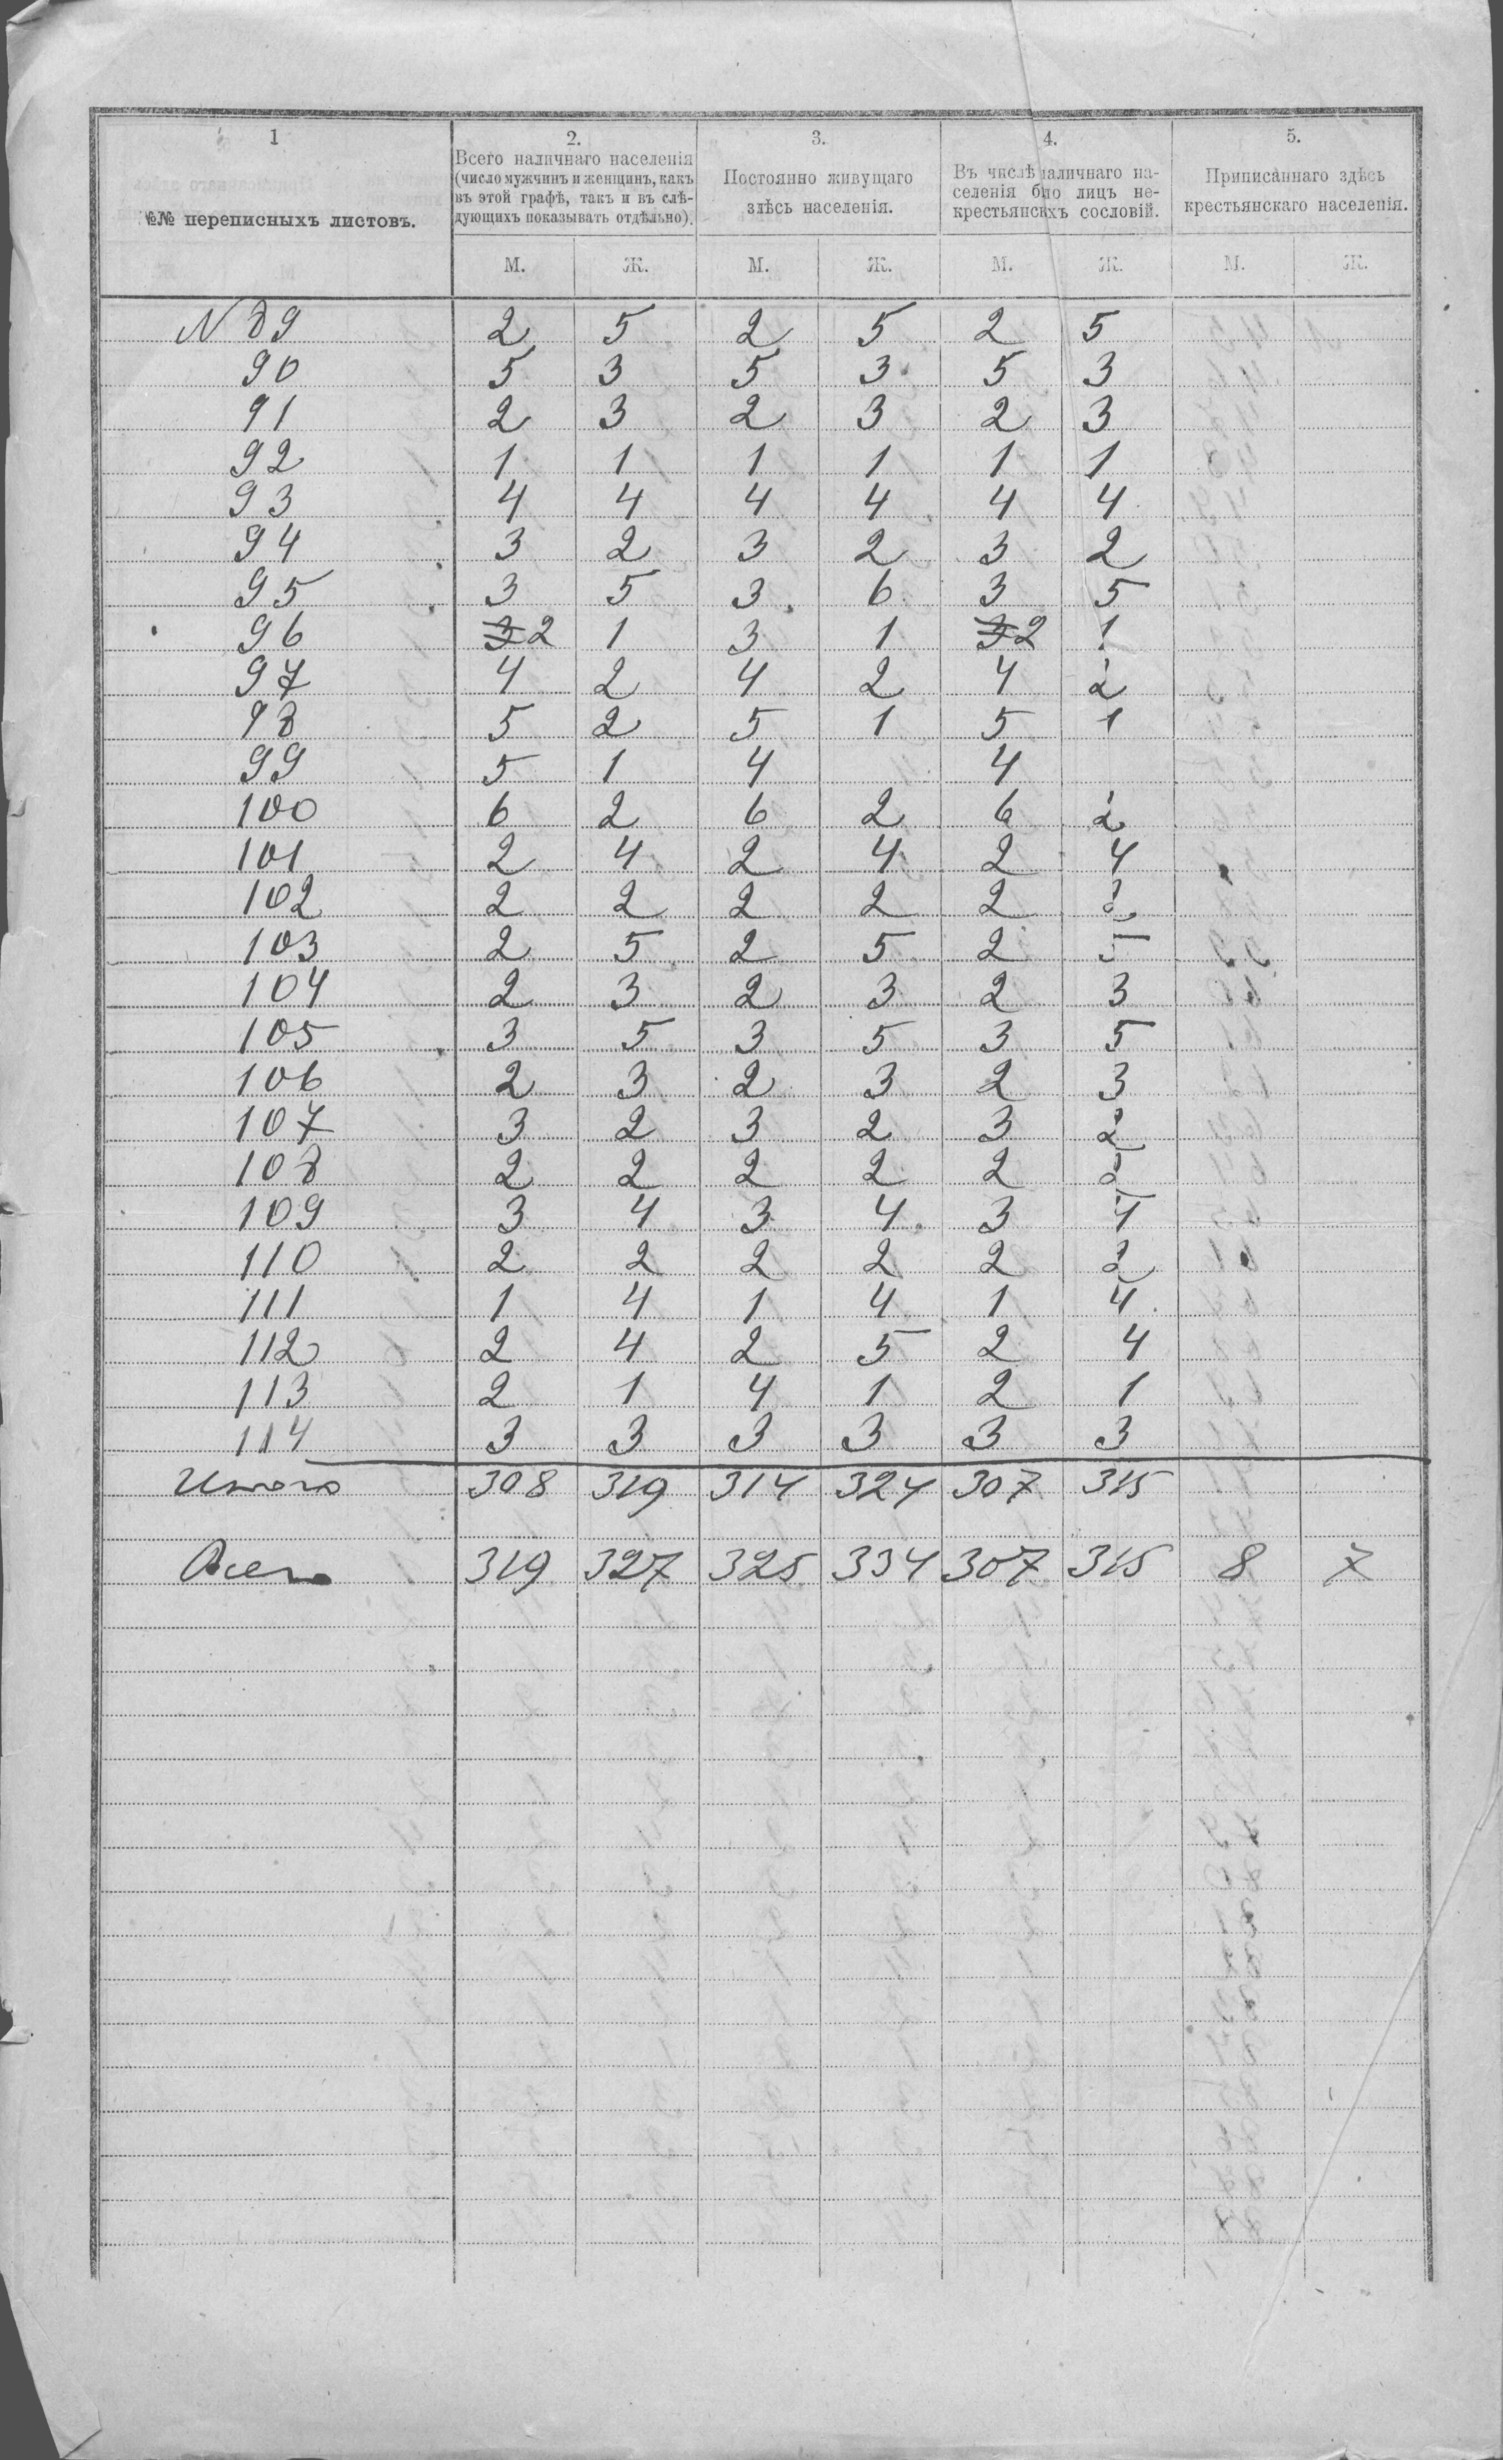 1 2. 3. 4. 5.
№№ переписныхъ листовъ.
Всего наличнаго населенія
(число мужчинъ и женщинъ, какъ
въ этой графѣ, такъ и въ слѣ-
дующихъ показывать отдѣльно).
Постоянно живущаго
здѣсь населенія.
Въ числѣ наличнаго на-
селенія было лицъ не-
крестьянскихъ сословій.
Приписаннаго здѣсь
крестьянскаго населенія.
М. Ж. М. Ж. М. Ж. М. Ж.
N 89 2 5 2 5 2 5
90 5 3 5 3 5 3
91 2 3 2 3 2 3
92 1 1 1 1 1 1
93 4 4 4 4 4 4
94 3 2 3 2 3 2
95 3 5 3 6 3 5
96 3 2 1 3 1 3 2 1
97 4 2 4 2 4 2
98 5 2 5 1 5 1
99 5 1 4 4
100 6 2 6 2 6 2
101 2 4 2 4 2 4
102 2 2 2 2 2 2
103 2 5 2 5 2 5
104 2 3 2 3 2 3
105 3 5 3 5 3 5
106 2 3 2 3 2 3
107 3 2 3 2 3 2
108 2 2 2 2 2 2
109 3 4 3 4 3 4
110 2 2 2 2 2 2
111 1 4 1 4 1 4
112 2 4 2 5 2 4
113 2 1 4 1 2 1
114 3 3 3 3 3 3
Итого 308 319 314 324 307 315
Всего 319 327 325 334 307 315 8 7